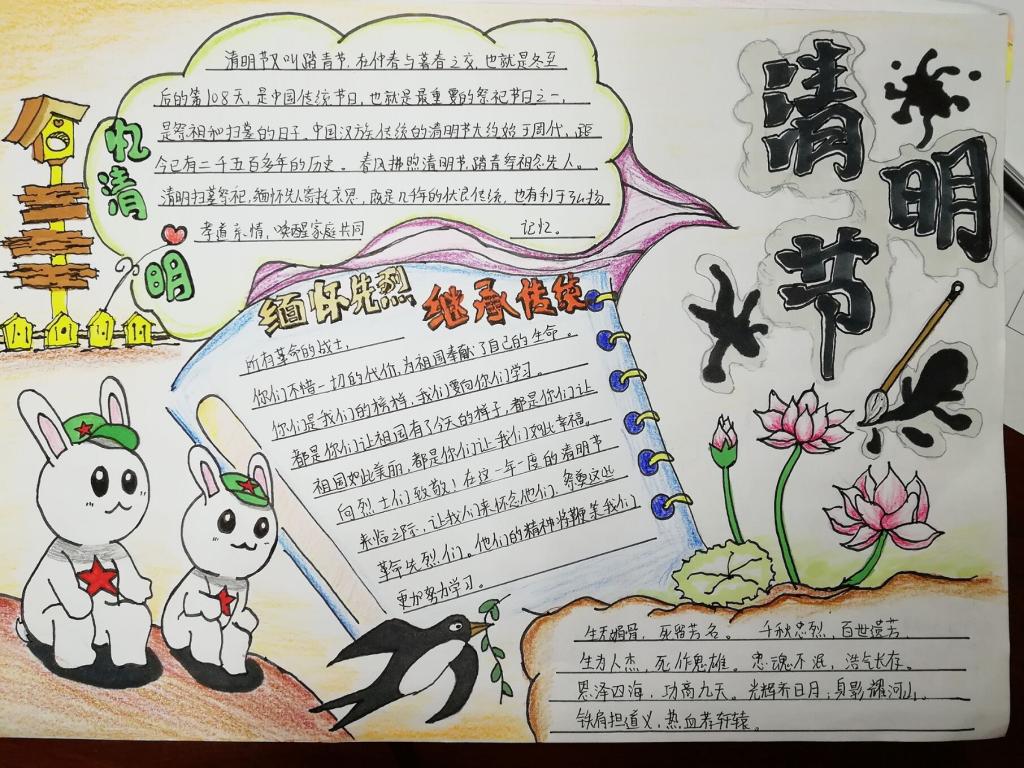 清明节
忆清明
清明节又叫踏青节，在仲春与暮春之交，也就是冬至
后的第108天，是中国传统节日，也就是最重要的祭祀节日之一，
是祭祖和扫墓的日子。中国汉族传统的清明节大约始于周代，距
今已有二千五百多年的历史。春风拂煦清明节，踏青祭祖念先人。
清明扫墓祭祀，缅怀先人寄托哀思，既是几千年的优良传统，也有利于弘扬
孝道亲情，唤醒家庭共同记忆。
缅怀先烈 继承传统
所有革命的战士，
你们不惜一切的代价，为祖国奉献了自己的生命。
你们是我们的榜样，我们要向你们学习。
都是你们让祖国有了今天的样子，都是你们让
祖国如此美丽，都是你们让我们如此幸福。
向烈士们致敬！在这一年一度的清明节
来临之际，让我们来怀念他们，祭奠这些
革命先烈们。他们的精神将鞭策我们
更加努力学习。
生无媚骨，死留芳名。 千秋忠烈，百世遗芳，
生为人杰，死作鬼雄。忠魂不泯，浩气长存。
恩泽四海，功高九天。光辉齐日月；身影耀河山。
铁肩担道义，热血荐轩辕。